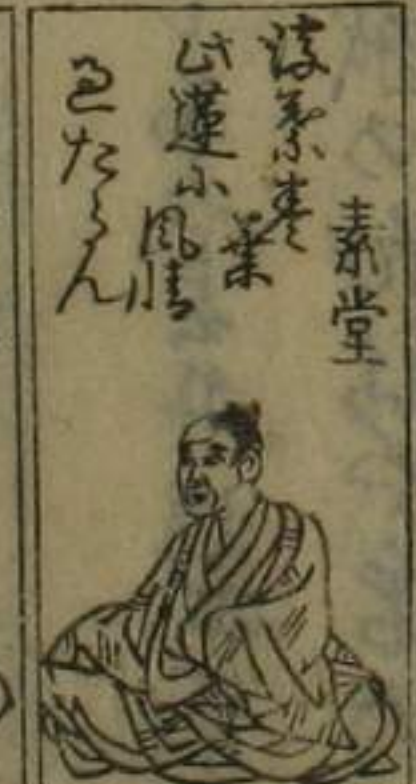 素堂
浮葉巻
葉
此蓮
風情
過たらん